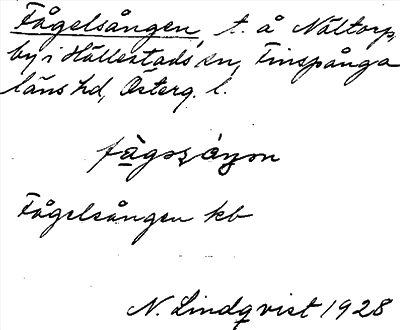 Fågelsången, t. å Nältorp,
by i Hällestads sn, Finspånga
läns hd, Österg. l.
Fågelsången kb
N. Lindqvist 1928